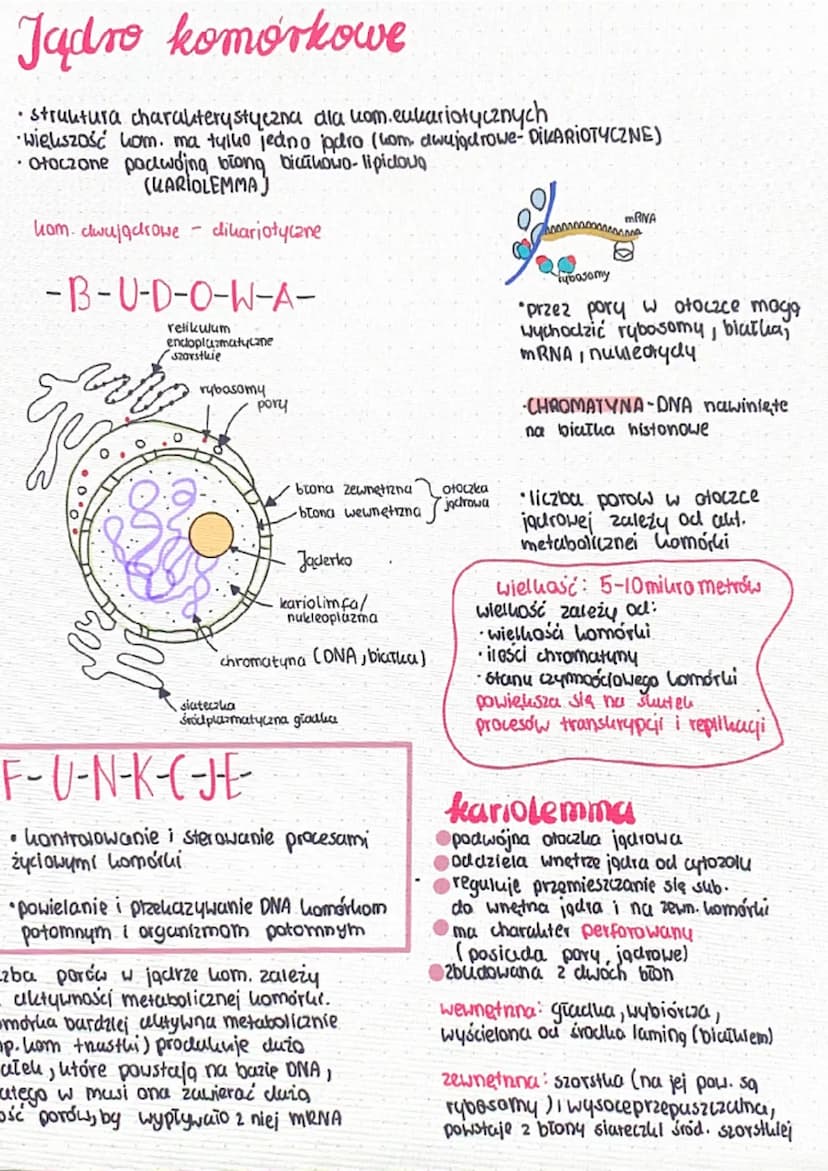 Jądro komórkowe
• struktura charakterystyczna dla kom. eukariotycznych
• większość kom. ma tylko jedno jądro (kom. dwujądrowe - DIKARIOTYCZNE)
• otoczone podwójną błoną białkowo-lipidową
(KARIOLEMMA)
kom. dwujądrowe - dikariotyczne
-B-U-D-O-W-A-
retikulum
endoplazmatyczne
szorstkie
rybosomy
pory
błona zewnętrzna
błona wewnętrzna
otoczka
jądrowa
Jąderko
kariolimfa/
nukleoplazma
chromatyna (DNA, białka)
siateczka
śródplazmatyczna gładka
mRNA
rybosomy
• przez pory w otoczce mogą
wychodzić rybosomy, białka,
mRNA, nukleotydy
• CHROMATYNA - DNA nawinięte
na białka histonowe
• liczba porów w otoczce
jądrowej zależy od akt.
metabolicznej komórki
wielkość: 5-10 mikrometrów
wielkość zależy od:
• wielkości komórki
• ilości chromatyny
• stanu czynnościowego komórki
powiększa się na skutek
procesów transkrypcji i replikacji
F-U-N-K-C-J-E-
• kontrolowanie i sterowanie procesami
życiowymi komórki
• powielanie i przekazywanie DNA komórkom
potomnym i organizmom potomnym
zba porów w jądrze kom. zależy
aktywności metabolicznej komórki.
mórka bardziej aktywna metabolicznie
np. kom trzustki) produkuje dużo
ałek, które powstają na bazie DNA,
atego w musi ona zawierać dużą
ość porów, by wypływało z niej mRNA
kariolemma
podwójna otoczka jądrowa
oddziela wnętrze jądra od cytozolu
reguluje przemieszczanie się sub.
do wnętrza jądra i na zewn. komórki
ma charakter perforowany
(posiada pory jądrowe)
zbudowana z dwóch błon
wewnętrzna: gładka, wybiórcza,
wyścielona od środka laminą (białkiem)
zewnętrzna: szorstka (na jej pow. są
rybosomy) i wysoceprzepuszczalna,
powstaje z błony siateczki śród. szorstkiej